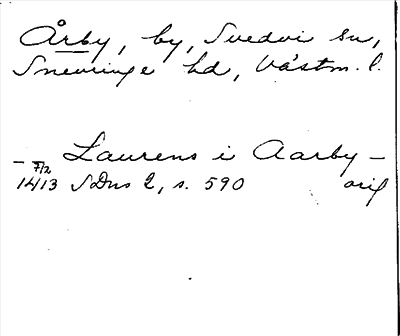 Årby, by, Svedvi sn,
Snevringe hd, Västm. l.
— — Laurens i Aarby —
7/2
1413 SDns 2, s. 590 orig